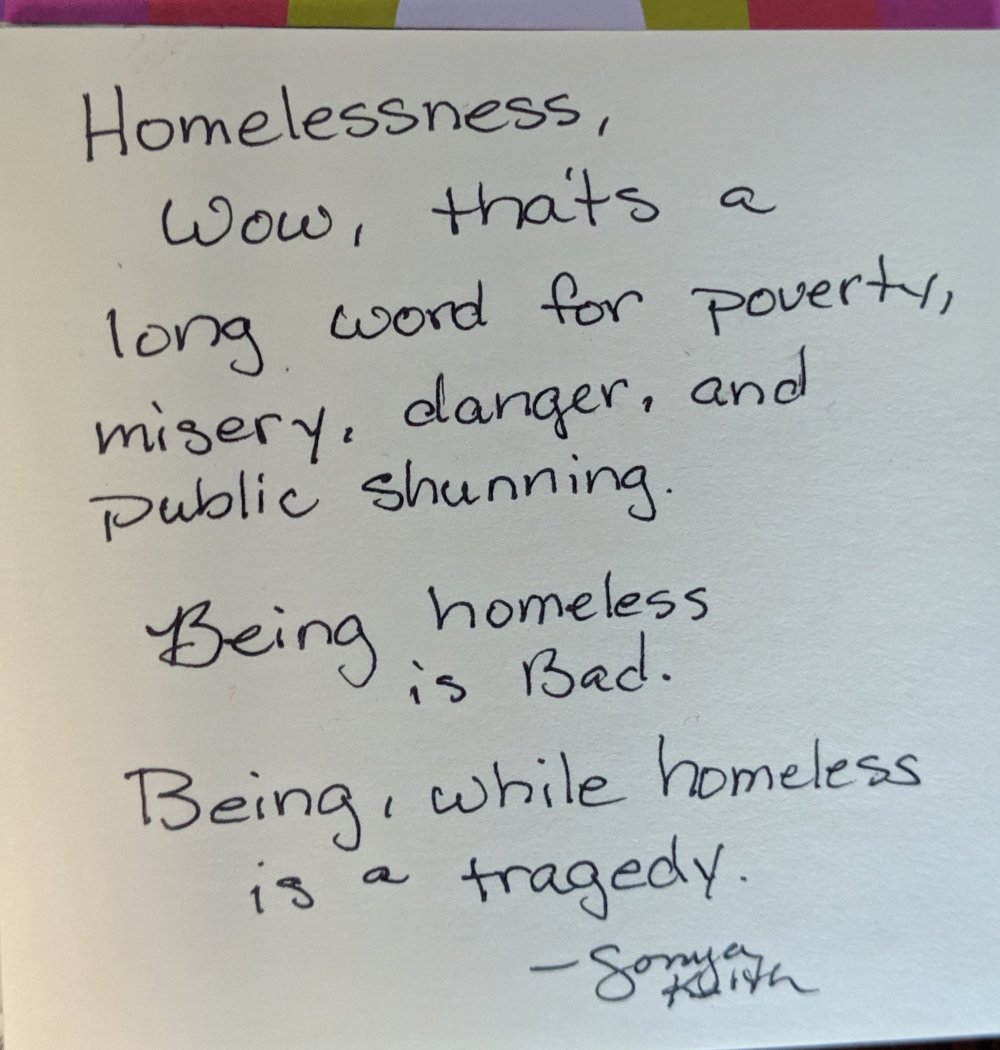 Homelessness,
Wow, that's a
long word for poverty,
misery, danger, and
public shunning.
Being homeless
is Bad.
Being, while homeless
is a tragedy.
—Sonya
Keith